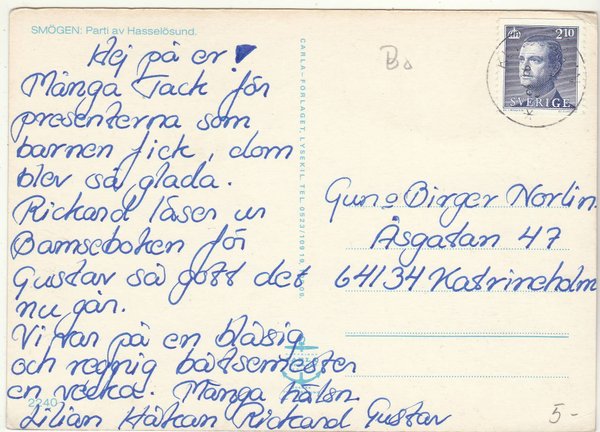 SMÖGEN: Parti av Hasselösund.
Hej på er!
Många Tack för
presenterna som
barnen fick, dom
blev så glada.
Rickard läser ur
Bamseboken för
Gustav så gott det
nu går.
Vi var på en blåsig
och regnig båtsemester
en vecka. Många hälsn.
Lilian Håkan Rickard Gustav
2240
CARLA-FÖRLAGET, LYSEKIL. TEL. 0523/109 10,
Bo
2.10
SVERIGE
Gun o Birger Norlin.
Åsgatan 47
64134 Katrineholm
5-